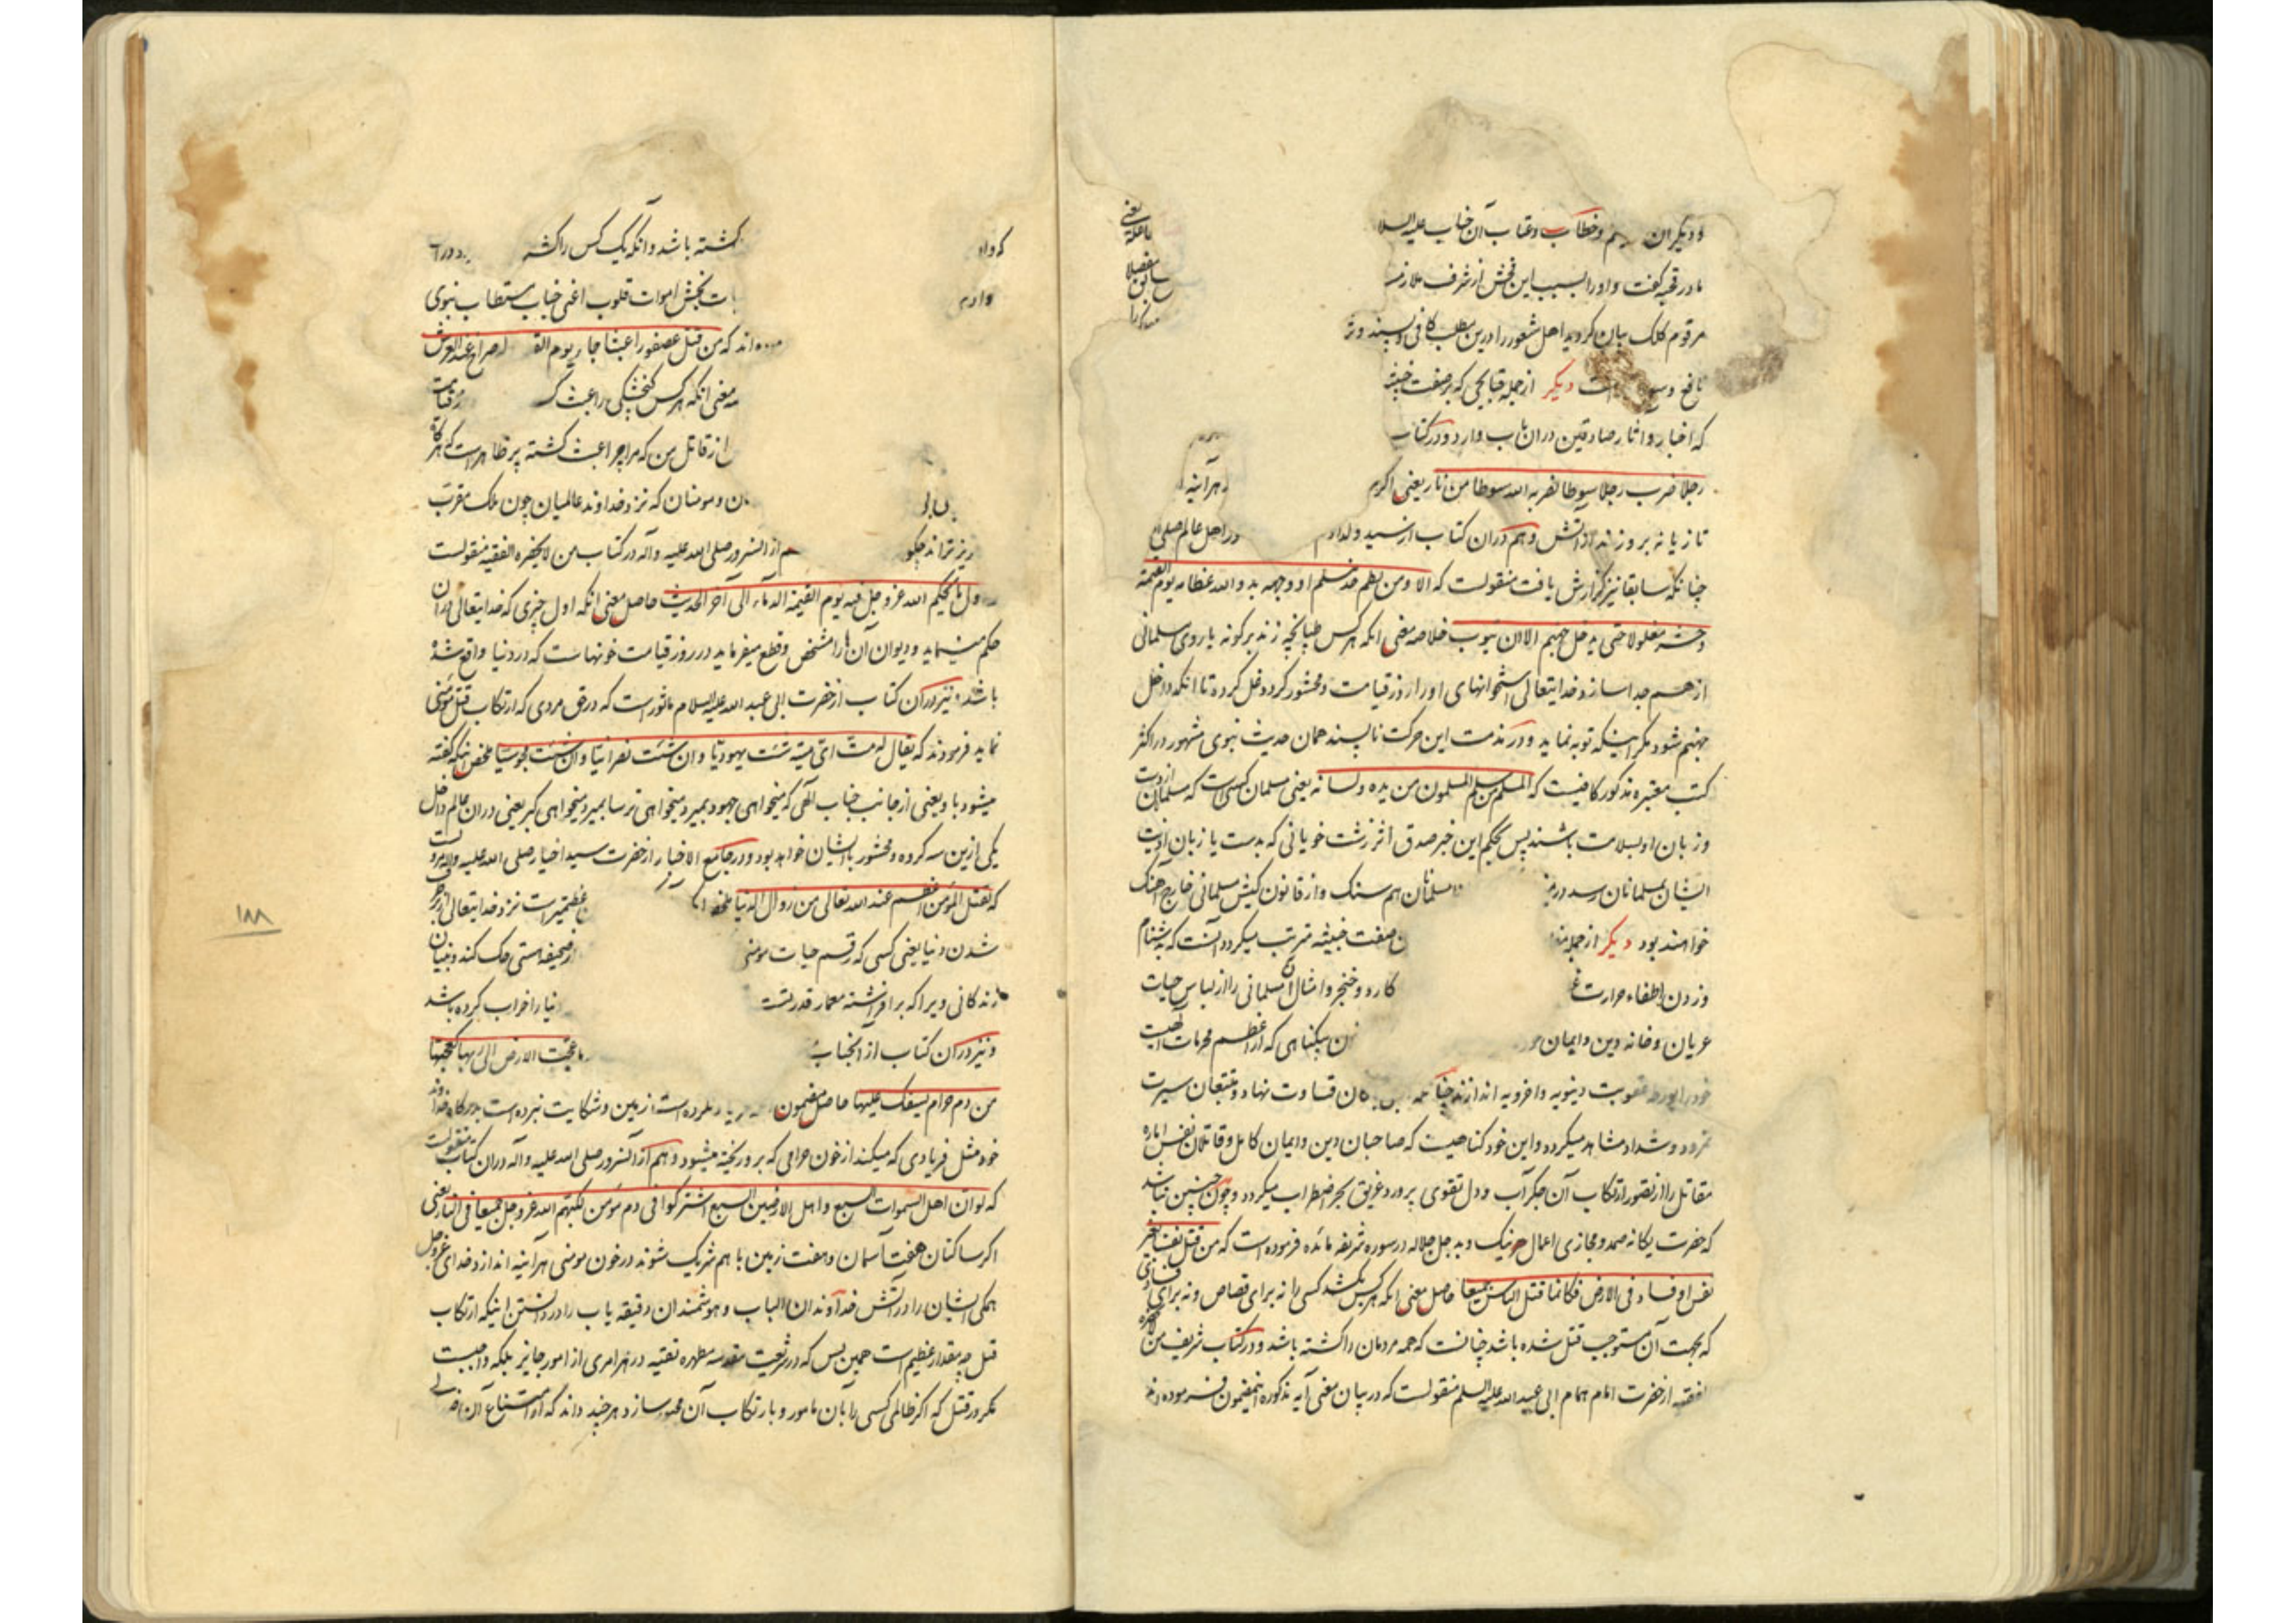 و دیگران وخطاب وعتاب آن جناب علیه السلا
مادر قحبه کفت و اورا بسبب این فحش از شرف ملازمـ
یعنی
مفصلا
مرقوم کلک بیان کردید اهل شعور را درین مطلب کافی و بسند و نز
نافع و دیکر از جمله قبایحی که بر صفت خبیثه
که اخبار و اثار صادقین دران باب وارد و در کتاب
رجلا ضرب رجلا سوطا لضربه الله سوطا من نار یعنی اکرم هر آینه
تازیانه بر وزند از آتش و هم دران کتاب از سید ولدادم در اهل عالم صلی
چنانکه سابقا نیز کزارش یافت منقولست که الا ومن لطم خد مسلم او وجهه بدد الله عظامه یوم القیمة
وحشر مغلولا حتی یدخل جهنم الا ان یتوب خلاصه معنی انکه هر کس طپانچه زند بر کونه یا روی مسلمانی
از هم جدا سازد خدایتعالی استخوانهای اورا روز قیامت ومحشور کردد غل کرده تا انکه داخل
جهنم شود مکر اینکه توبه نماید و در مذمت این حرکت ناپسند همان حدیث نبوی مشهور در اکثر
کتب معتبره مذکور کافیست که المسلم من سلم المسلمون من یده ولسانه یعنی مسلمان کسی است که مسلمانان از دست
و زبان او بسلامت باشند پس بحکم این خبر صدق اثر زشت خویانی که بدست یا زبان اذیت
ایشان بمسلمانان رسد در مسلمانان هم سنک و از قانون کیش مسلمانی خارج آهنک
خواهند بود دیکر از جمله صفت خبیثه مترتب میکردد آنست که بدشنام
وزدن اطفاء حرارت کارد و خنجر و امثال آن مسلمانی را از لباس حیات
عریان و خانه دین و ایمان بیکناهی که از اعظم محرمات الهیست
عقوبت دینویه و اخرویه اندازند چنا ن قساوت نهاد و متتبعان سیرت
نمرود و شداد مشاهد میکردد و این خود کناهیست که صاحبان دین و ایمان کامل و قاتلان نفس اماره
مقاتل را از تصور ارتکاب آن جکر آب و دل تقوی پرورد غریق بحر اضطراب میکردد و چون چنین نباشد
که حضرت یکانه صمد و مجازی اعمال هر نیک و بد جل جلاله در سوره شریفه مائده فرموده است که من قتل نفسا بغیر
نفس او فساد فی الارض فکانما قتل الناس جمیعا حاصل معنی انکه هر کس بکشد کسی را نه برای قصاص و نه برای فسادی
که بجهت آن مستوجب قتل شده باشد چنانست که همه مردمان را کشته باشد و در کتاب شریف من
الفقیه از حضرت امام همام ابی عبد الله علیه السلم منقولست که در بیان معنی آیه مذکوره اینمضمون فرموده
کشته باشد و انکه یک کس را کشته
بات بخش اموات قلوب اعنی جناب مستطاب نبوی
اند که من قتل عصفورا عبثا جاء یوم القـ صراخ عند العرش
معنی انکه هر کس کنجشکی را عبث
از قاتل من که مرا چرا عبث کشته پر ظاهر است که هرکاه
ن و مومنان که نزد خداوند عالمیان چون ملک مقرب
ریز تراند چکو هم از انسرور صلی الله علیه واله در کتاب من لایحضره الفقیه منقولست
ول ما یحکم الله عز وجل فیه یوم القیمة الدماء الی آخر الحدیث حاصل معنی انکه اول چیزی که خدایتعالی دران
حکم مینماید و دیوان آن هارا مشخص و قطع میفرماید در روز قیامت خونهاست که در دنیا واقع شده
باشد و نیز در آن کتاب از حضرت ابی عبد الله علیه السلام ماثور است که در حق مردی که ارتکاب قتل مومنی
نماید فرمودند که یقال له مت ای میتة شئت یهودیا وان شئت نصرانیا وان شئت مجوسیا ملخص اینکه کفته
میشود باو یعنی از جانب جناب الهی که میخواهی جهود بمیر و میخواهی ترسا بمیر و میخواهی کبر یعنی دران عالم داخل
یکی ازین سه کرده و محشور با ایشان خواهد بود و در جامع الاخبار از حضرت سید اخیار صلی الله علیه واله مرویست
که لقتل المؤمن اعظم عند الله تعالی من زوال الدنیا عظیمتر است نزد خدایتعالی از
شدن دنیا یعنی کسی که رقم حیات مومنی از صحیفه هستی حک کند و بنیان
زندکانی ویرا که برافراشته معمار قدرتست دنیا را خراب کرده باشد
و نیز دران کتاب از انجناب ما عجت الارض الی ربها کعجیجها
من دم حرام یسفک علیها حاصل مضمون فریاد نکرده است زمین و شکایت نبرده است بدرکاه خداوند
خود مثل فریادی که میکند از خون حرامی که بر و ریخته میشود و هم از انسرور صلی الله علیه واله دران کتاب منقولست
که لو ان اهل السموات السبع و اهل الارضین السبع اشترکوا فی دم مؤمن لکبهم الله عز وجل جمیعا فی النار یعنی
اکر ساکنان هفت آسمان و هفت زمین با هم شریک شوند در خون مومنی هر آینه اندازد خدای عز وجل
همکی ایشان را در آتش خداوندان الباب و هوشمندان دقیقه یاب را در دانستن اینکه ارتکاب
قتل چه مقدار عظیم است همین بس که در شریعت مقدسه مطهره تقیه در هر امری از امور جایز بلکه واجبست
مکر در قتل که اکر ظالمی کسی را بآن مامور و بارتکاب آن مجبور سازد هر چند داند که از امتناع آن
۱۸۸